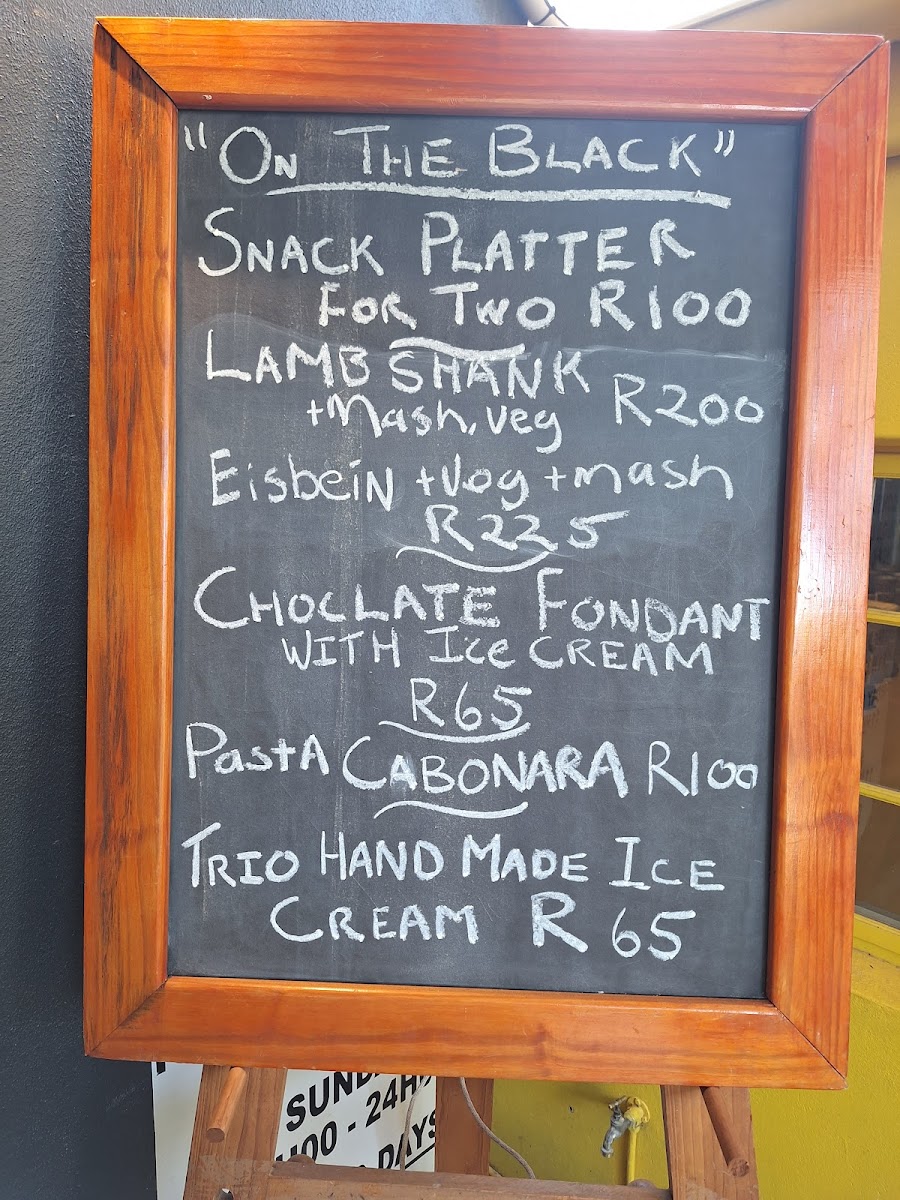 "ON THE BLACK"
SNACK PLATTER
FOR TWO R100
LAMB SHANK
+Mash, veg R200
EisbeiN +Veg +mash
R225
CHOCLATE FONDANT
WITH Ice CREAM
R65
PastA CABONARA R100
TRIO HAND MADE ICE
CREAM R 65
24H
DAYS